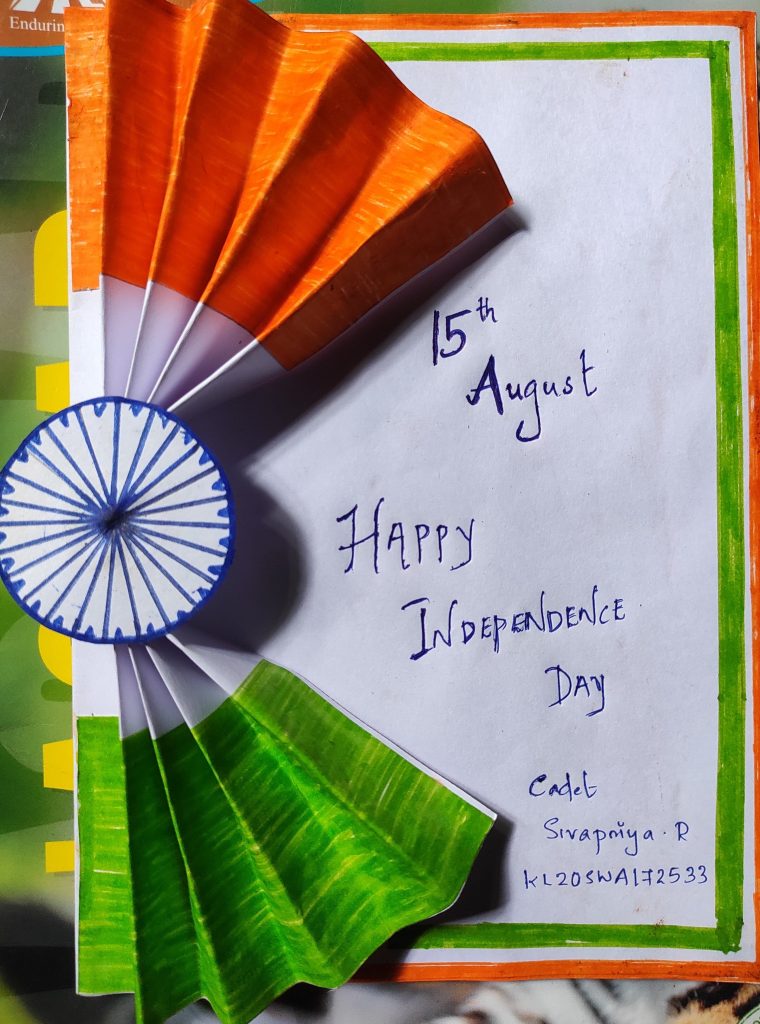 Enduring
15th
August
HAPPY
INDEPENDENCE
DAY
Cadet
Sivapriya. R
KL20SWA172533